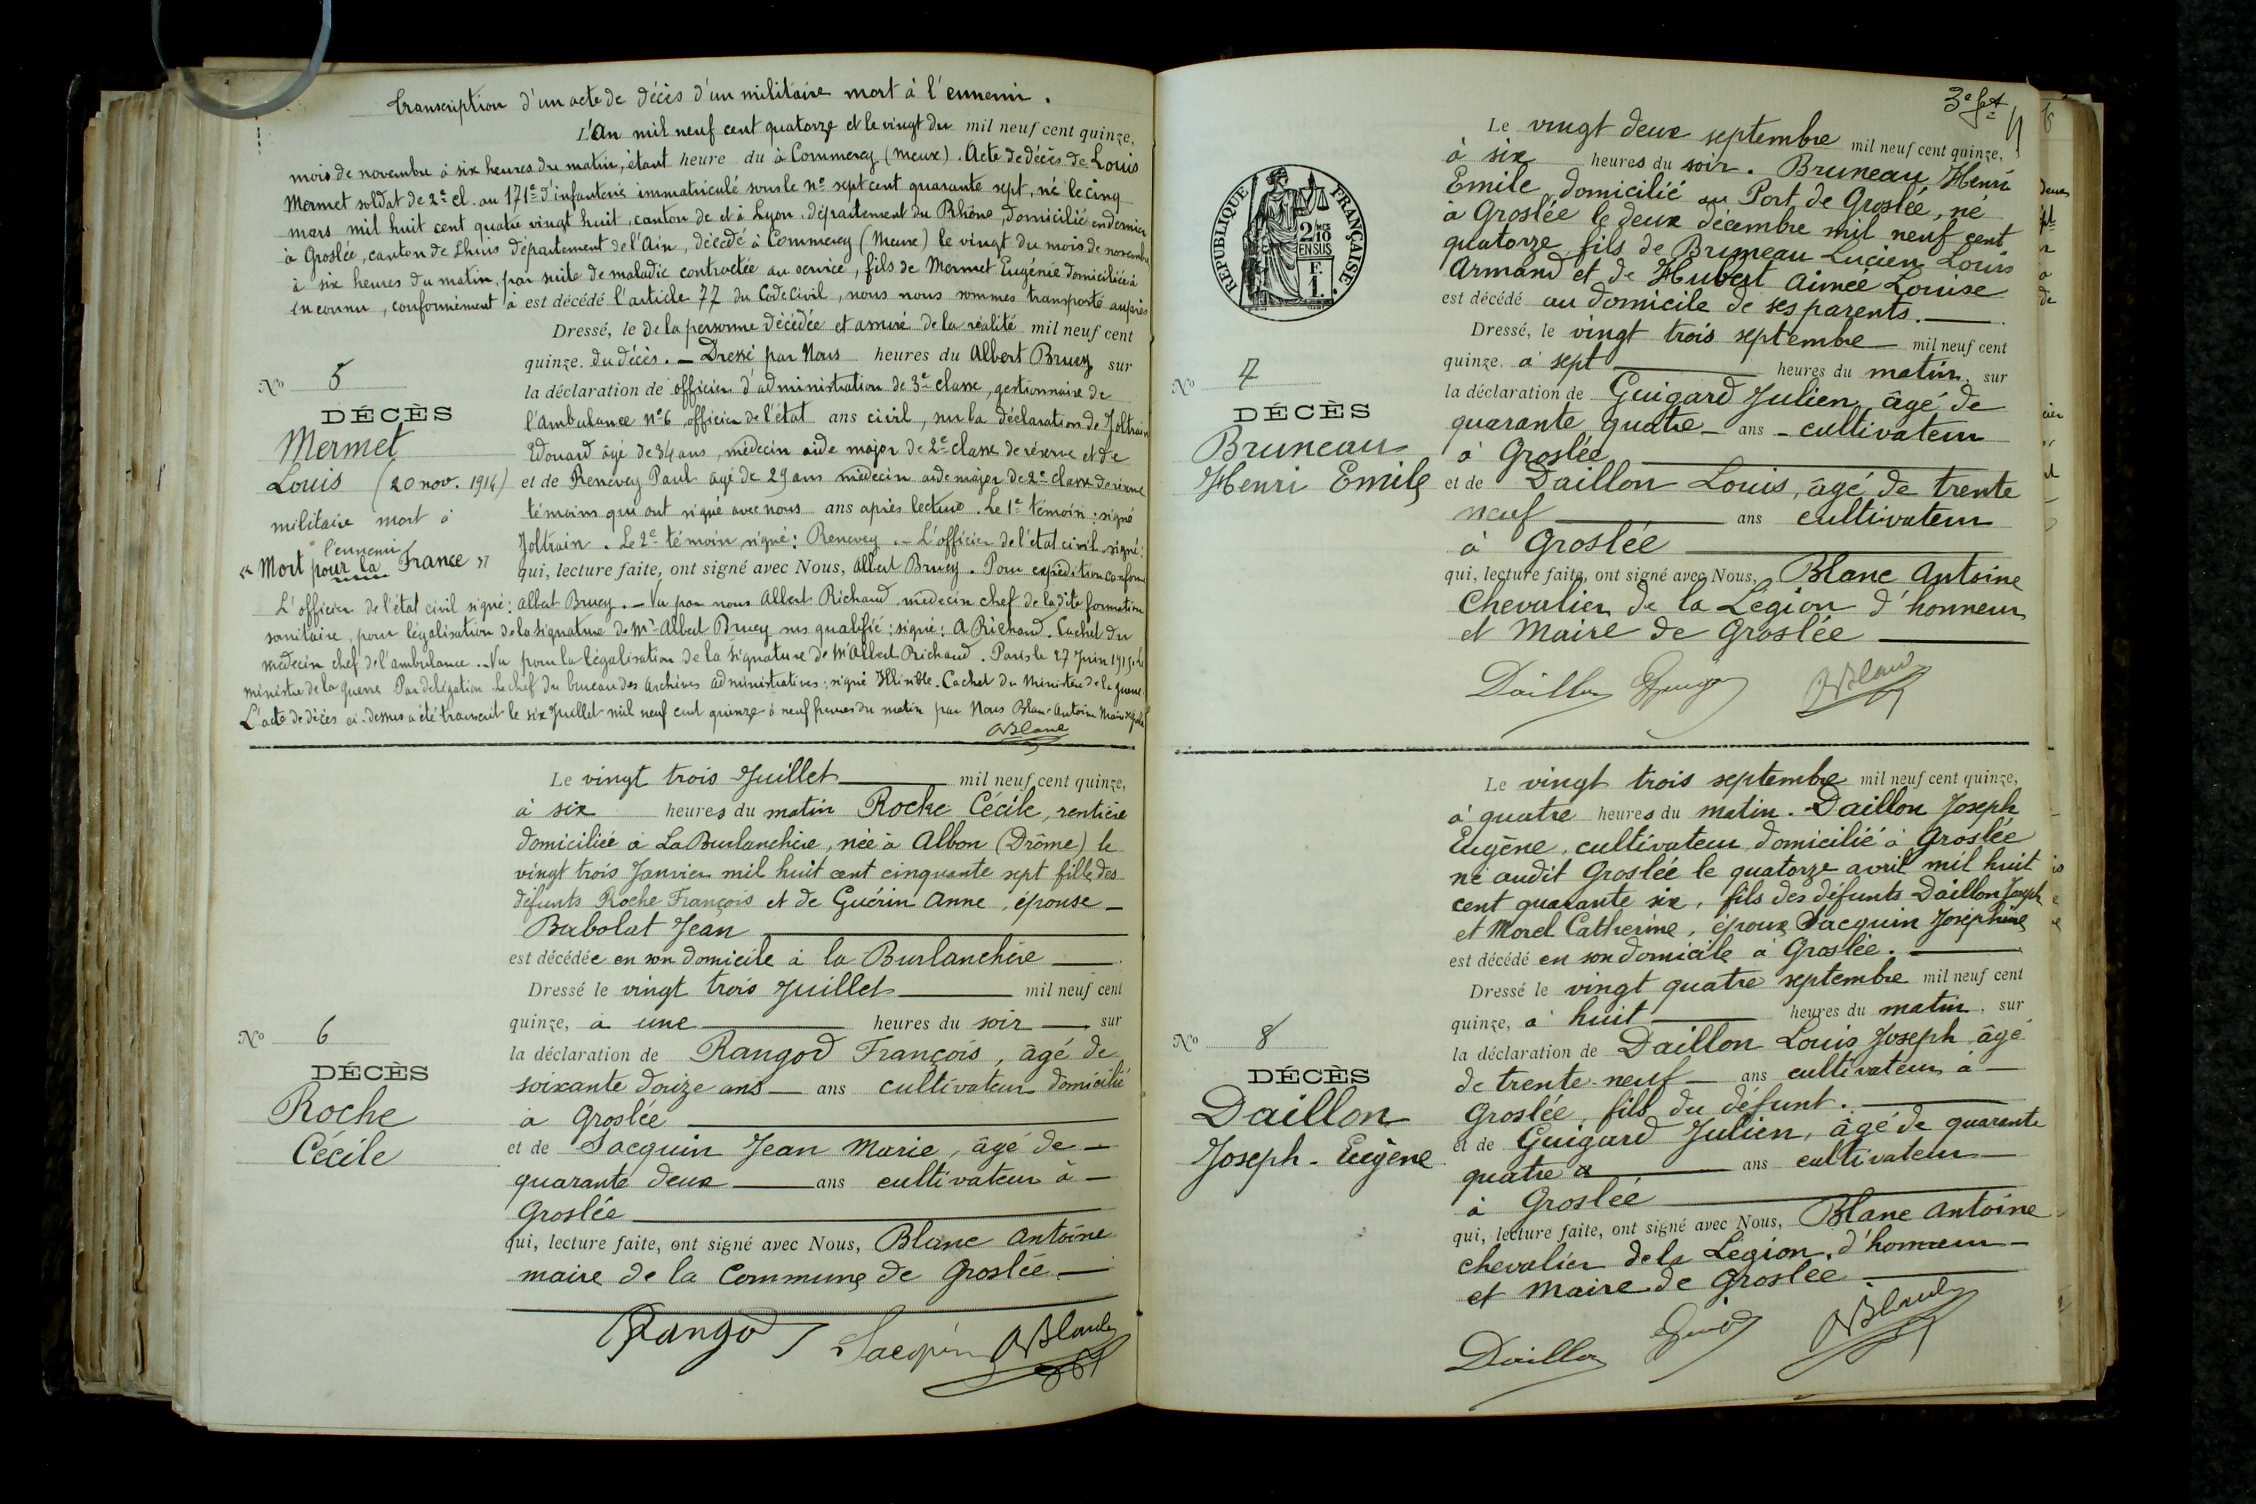 Transcription d'un acte de décès d'un militaire mort à l'ennemi.
L'An mil neuf cent quatorze et le vingt du mil neuf cent quinze,
mois de novembre à six heures du matin, étant heure du à Commercy (Meuse). Acte de décès de Louis
Mermet soldat de 2e cl. au 171e d'infanterie immatriculé sous le no sept cent quarante sept, né le cinq
mars mil huit cent quatre vingt huit, canton de et à Lyon, département du Rhône, domicilié en dernier
à Groslée, canton de Lhuis département de l'Ain, décédé à Commercy (Meuse) le vingt du mois de novembre
à six heures du matin, par suite de maladie contractée au service, fils de Mermet Eugénie domiciliée à
inconnu, conformément à est décédé l'article 77 du Code Civil, nous nous sommes transporté auprès
Dressé, le de la personne décédée et assuré de la réalité mil neuf cent
quinze. du décès. — Dressé par Nous heures du Albert Brucy sur
la déclaration de officier d'administration de 3e classe, gestionnaire de
l'ambulance no 6 officier de l'état ans civil, sur la déclaration de Joltrain
Edouard âgé de 34 ans, médecin aide major de 2e classe de réserve et de
et de Renevey Paul âgé de 29 ans médecin aide major de 2e classe de réserve
témoins qui ont signé avec nous ans après lecture. Le 1e témoin : signé
Joltrain. Le 2e témoin signé : Renevey. — L'officier de l'état civil signé :
qui, lecture faite, ont signé avec Nous, Albert Brucy. Pour expédition conforme
L'officier de l'état civil signé : Albert Brucy. — Vu par nous Albert Richaud médecin chef de la dite formation
sanitaire, pour légalisation de la signature de Mr Albert Brucy sus qualifié : signé : A Richaud. Cachet du
médecin chef de l'ambulance. — Vu pour la légalisation de la signature de M Albert Richaud. Paris le 27 Juin 1915. Le
ministre de la guerre Par délégation Le chef du bureau des archives administratives : signé Illisible. Cachet du Ministère de la guerre.
L'acte de décès ci-dessus a été transcrit le six Juillet mil neuf cent quinze à neuf heures du matin par Nous Blanc Antoine Maire
ABlanc
No 5
DÉCÈS
Mermet
Louis (20 nov. 1914)
militaire mort à
l'ennemi
« Mort pour la France »
Le vingt trois Juillet mil neuf cent quinze,
à six heures du matin Roche Cécile, rentière
domiciliée à La Burlanchère, née à Albon (Drôme) le
vingt trois Janvier mil huit cent cinquante sept fille des
défunts Roche François et de Guérin Anne, épouse
Babolat Jean
est décédée en son domicile à la Burlanchère
Dressé le vingt trois Juillet mil neuf cent
quinze, à une heures du soir sur
la déclaration de Rangod François, âgé de
soixante douze ans ans cultivateur domicilié
à Groslée
et de Sacquin Jean Marie, âgé de
quarante deux ans cultivateur à
Groslée
qui, lecture faite, ont signé avec Nous, Blanc Antoine
maire de la Commune de Groslée
Rangod Sacquin ABlanc
No 6
DÉCÈS
Roche
Cécile
3e
RÉPUBLIQUE FRANÇAISE.
2/10 EN SUS
F. 1.
Le vingt deux septembre mil neuf cent quinze,
à six heures du soir. Bruneau Henri
Emile, domicilié au Port de Groslée, né
à Groslée le deux décembre mil neuf cent
quatorze, fils de Bruneau Lucien Louis
Armand et de Hubert Aimée Louise
est décédé au domicile de ses parents.
Dressé, le vingt trois septembre mil neuf cent
quinze. à sept heures du matin, sur
la déclaration de Guigard Julien, âgé de
quarante quatre ans cultivateur
à Groslée
et de Daillon Louis, âgé de trente
neuf ans cultivateur
à Groslée
qui, lecture faite, ont signé avec Nous, Blanc Antoine
Chevalier de la Légion d'honneur
et Maire de Groslée
Daillon Guigard ABlanc
No 7
DÉCÈS
Bruneau
Henri Emile
Le vingt trois septembre mil neuf cent quinze,
à quatre heures du matin. Daillon Joseph
Eugène, cultivateur domicilié à Groslée
né audit Groslée le quatorze avril mil huit
cent quarante six, fils des défunts Daillon Joseph
et Morel Catherine, époux Sacquin Joséphine
est décédé en son domicile à Groslée.
Dressé le vingt quatre septembre mil neuf cent
quinze, à huit heures du matin, sur
la déclaration de Daillon Louis Joseph âgé
de trente-neuf ans cultivateur à
Groslée, fils du défunt.
et de Guigard Julien, âgé de quarante
quatre ans cultivateur
à Groslée
qui, lecture faite, ont signé avec Nous, Blanc Antoine
chevalier de la Légion d'honneur
et Maire de Groslée
Daillon Guigard ABlanc
No 8
DÉCÈS
Daillon
Joseph-Eugène